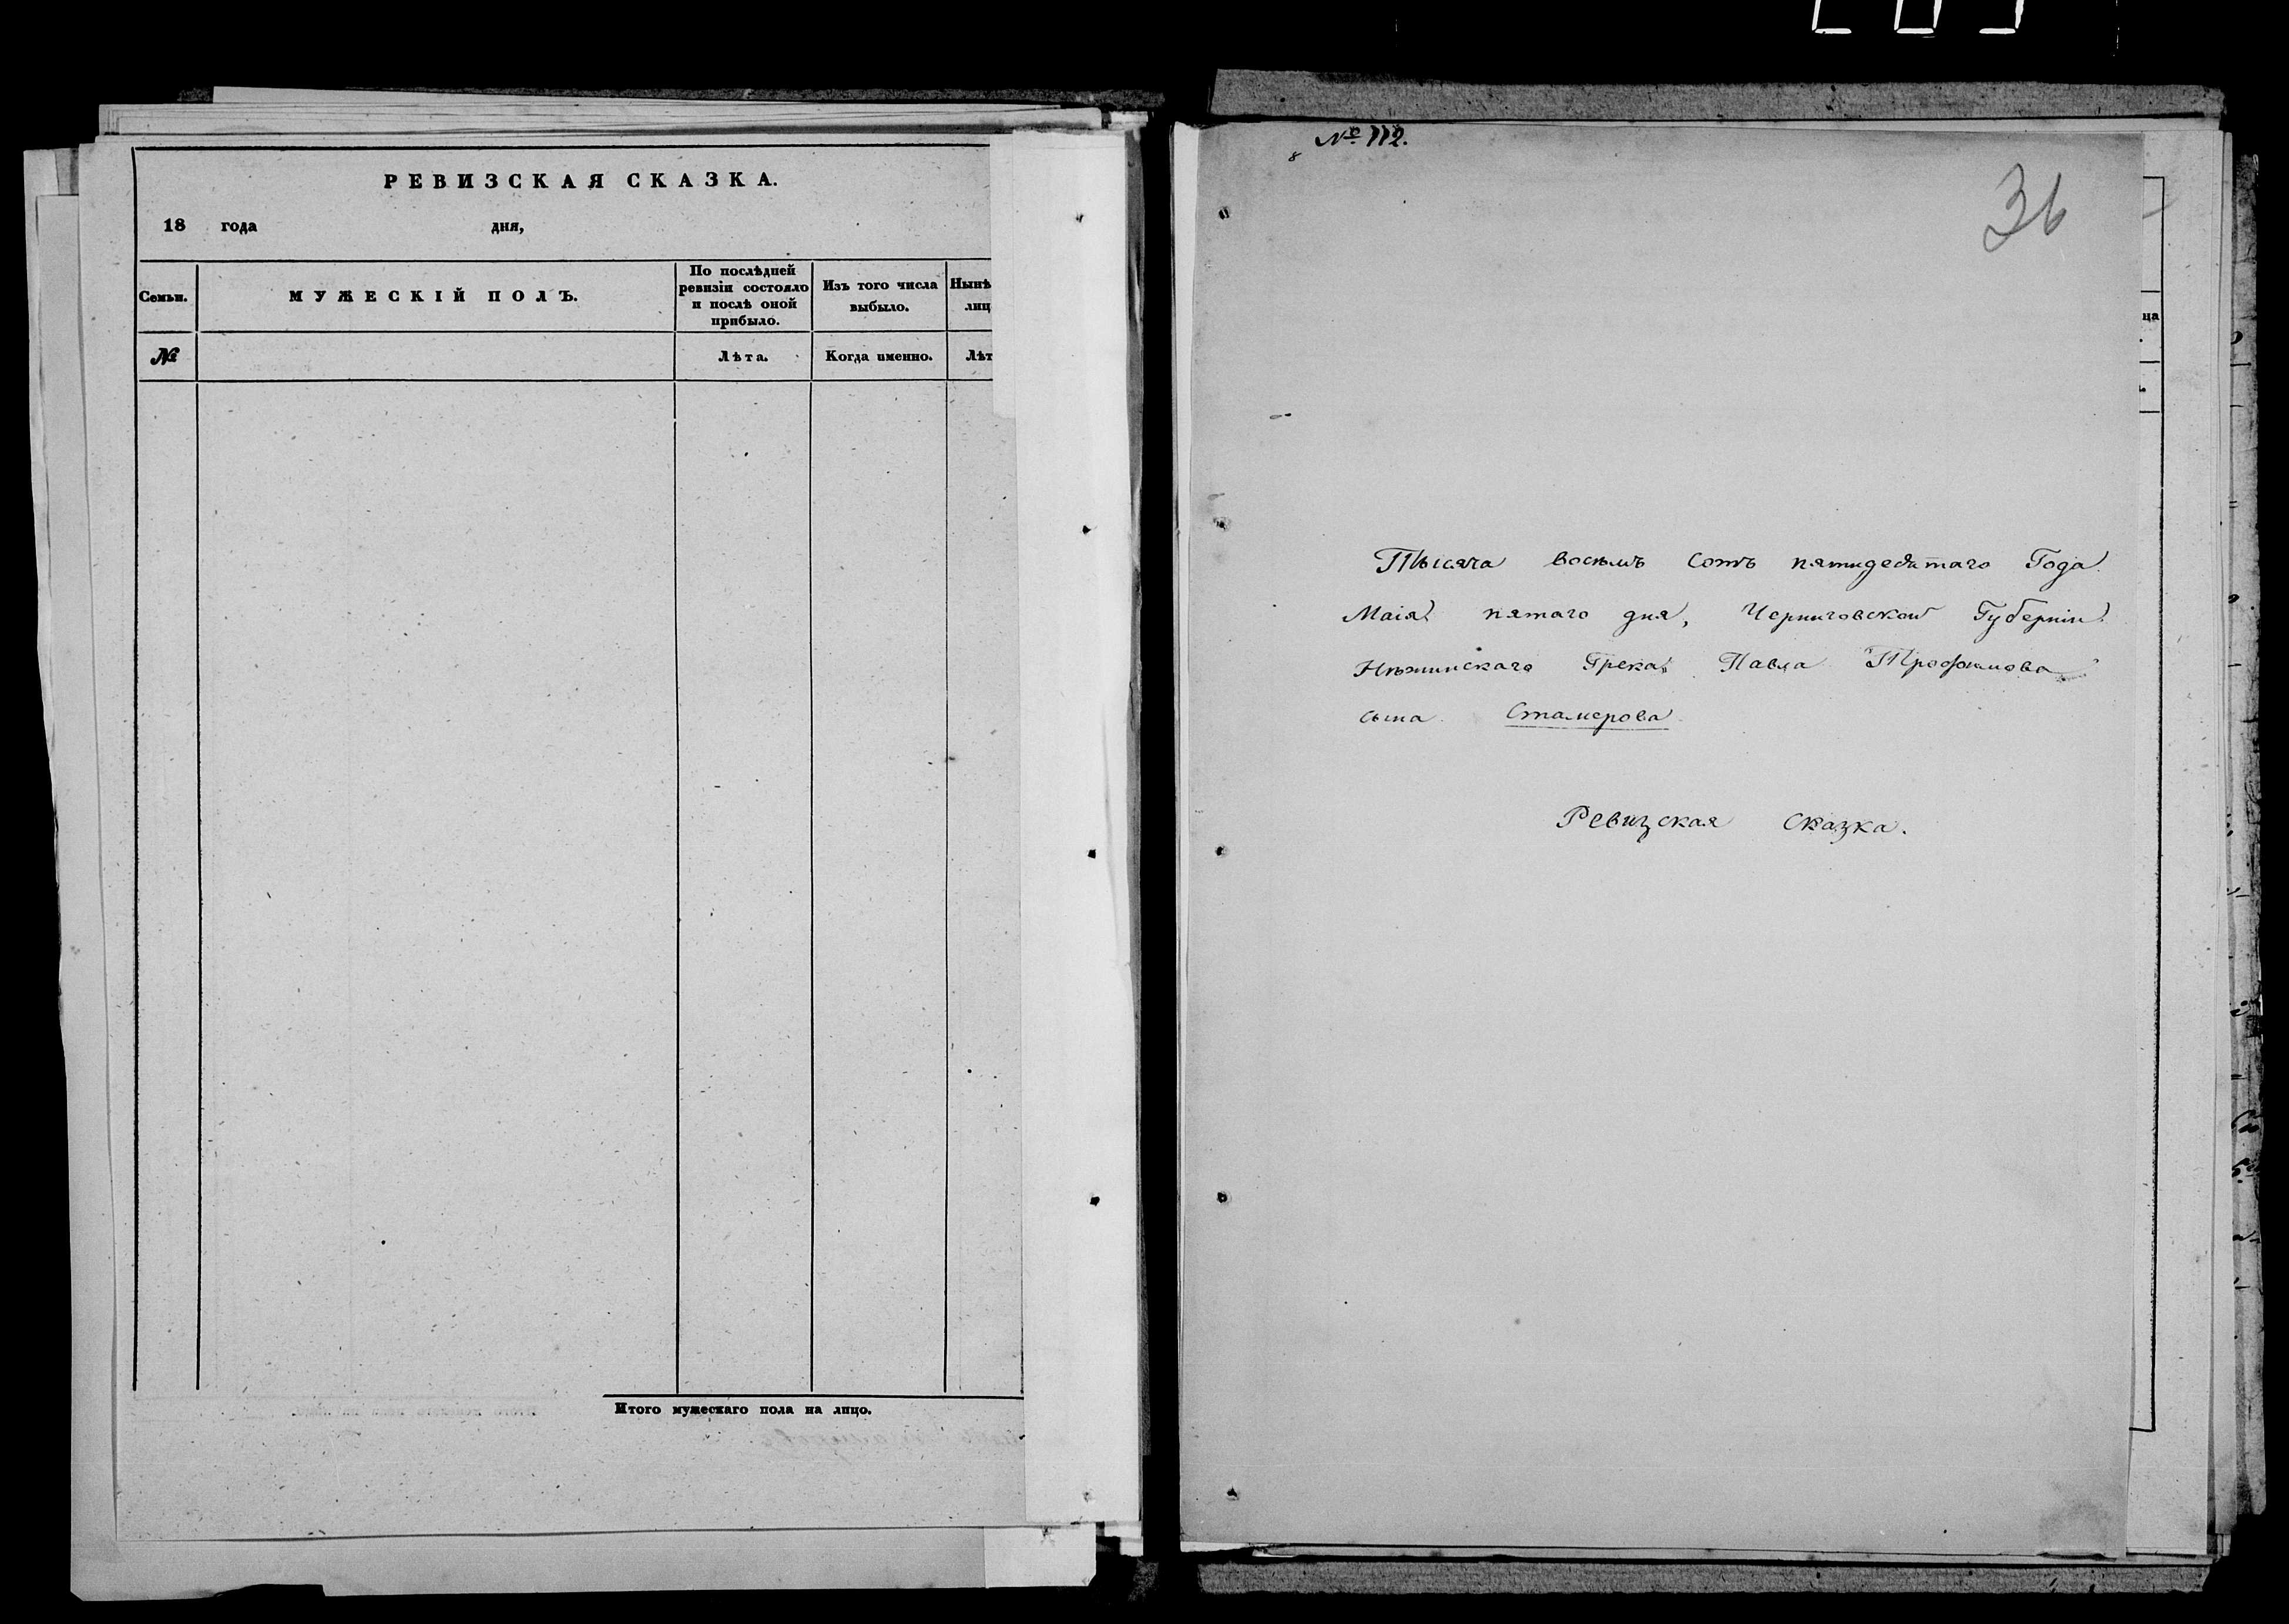 РЕВИЗСКАЯ СКАЗКА.
18 года дня,
Семьи.
МУЖЕСКІЙ ПОЛЪ.
По послѣдней
ревизіи состояло
и послѣ оной
прибыло.
Изъ того числа
выбыло.
Нынѣ
лиц
№
Лѣта.
Когда именно.
Лѣт
Итого мужескаго пола на лицо.
№ 112.
8
36
Тысяча восемъ сотъ пятидесятаго Года
Маія пятаго дня, Черниговской Губерніи
Нѣжинскаго Грека Павла Трофимова
сына Стамерова
Ревизская Сказка.
ца